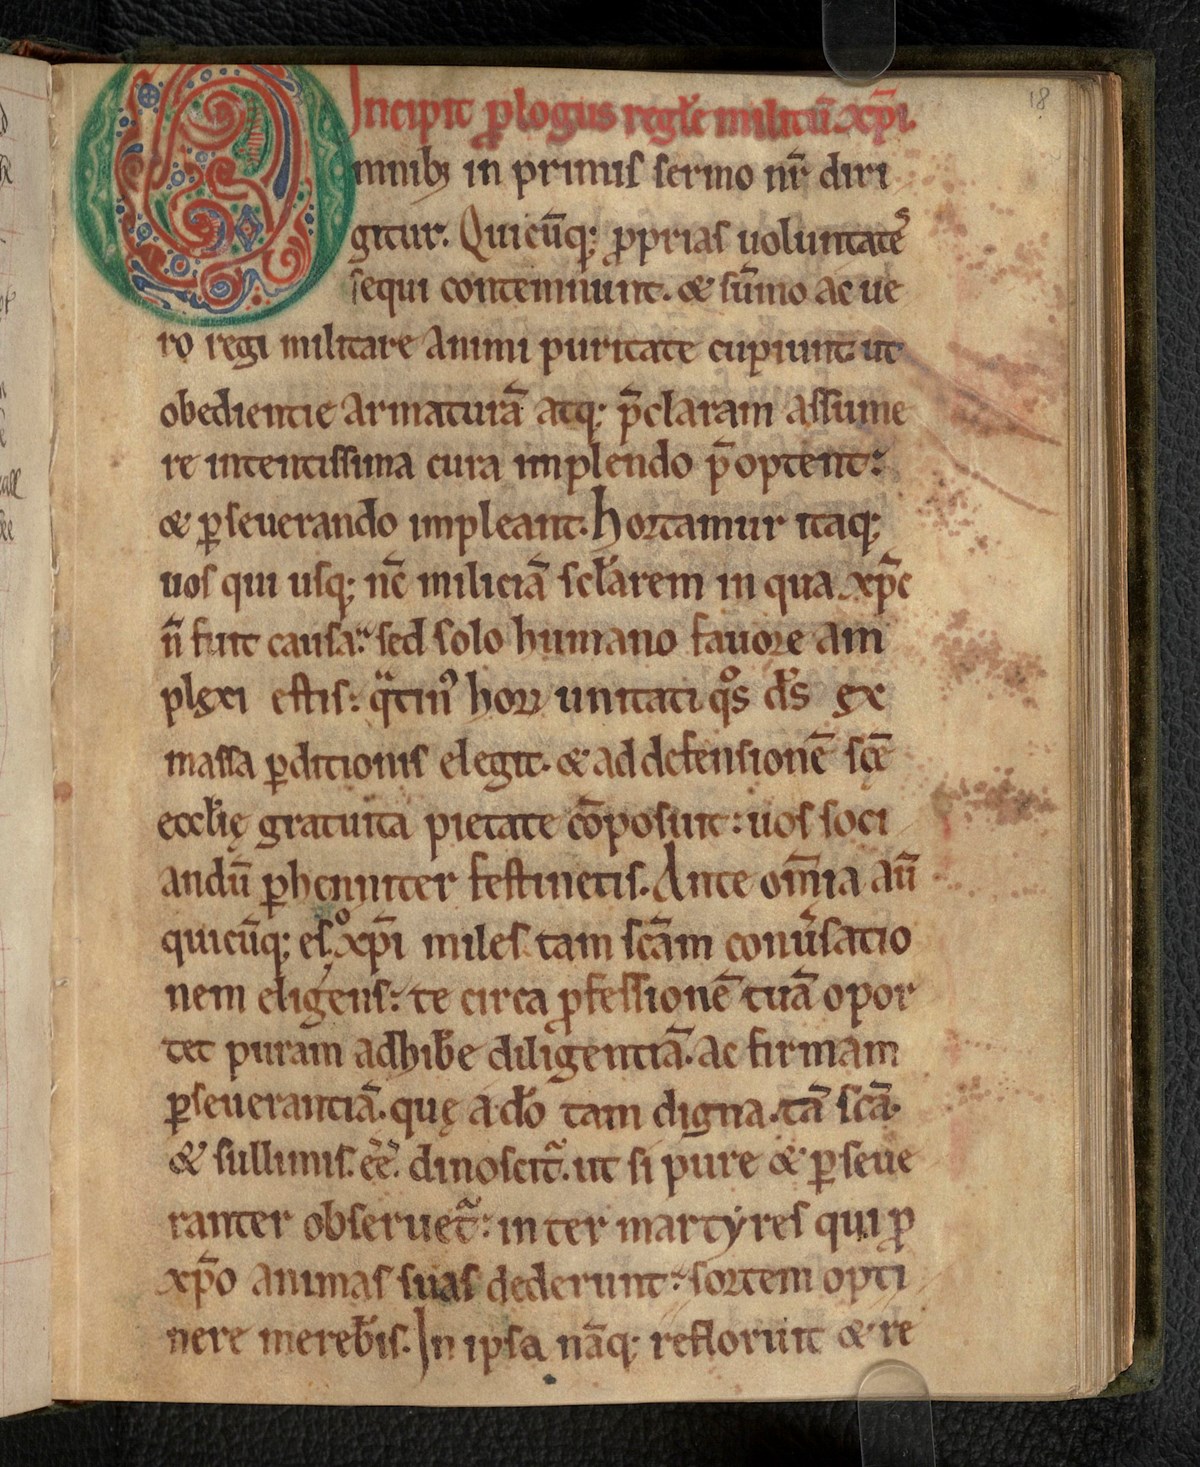 18
Incipit ꝓlogus reg̃le militũ xp̃i.
Omnibꝫ in primis sermo nr̃ diri
gitur. Quicũqꝫ ꝓprias uoluntatẽˢ
sequi contemnunt. & sũmo ac ue
ro regi militare animi puritate cupiunt ut
obedientie armaturã atqꝫ p̃claram assume
re intentissima cura implendo p̃optent:
& ꝑseuerando impleant. hortamur itaqꝫ
uos qui usqꝫ nc̃ miliciã scl̃arem in qua xp̃c
ñ fuit causa: sed solo humano fauore am
plexi estis: qͣtinꝰ hoꝝ unitati qͦs ds̃ ex
massa ꝑditionis elegit. & ad defensionẽ scę̃
eccl̃ię gratuita pietate cõposuit: uos soci
andũ ꝑhenniter festinetis. Ante om̃ia aũ
quicũqꝫ es ͦ xp̃i miles tam scãm conũsatio
nem eligens: te circa ꝓfessionẽ tuã opor
tet puram adhib̃e diligentiã. ac firmam
ꝑseuerantiã. quę a dõ tam digna. tã scã.
& sullimis. eẽ. dinoscit̃. ut si pure & ꝑseue
ranter obseruet̃: inter martyres qui ꝓ
xp̃o animas suas dederunt: sortem opti
nere mereb̃is. In ipsa nãqꝫ refloruit & re